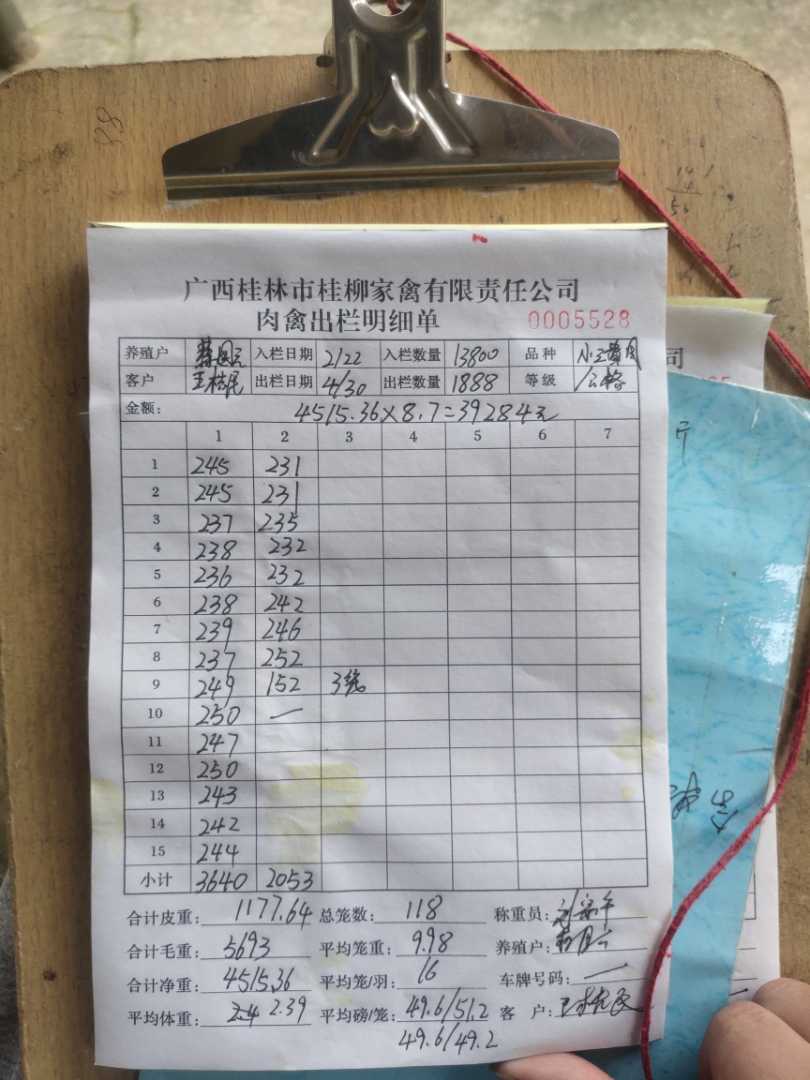 广西桂林市桂柳家禽有限责任公司
肉禽出栏明细单 0005528
养殖户 入栏日期 2/22 入栏数量 13800 品种
客户 出栏日期 4/30 出栏数量 1888 等级
金额: 4515.36×8.7=39284元
1 2 3 4 5 6 7
1 245 231
2 245 231
3 237 235
4 238 232
5 236 232
6 238 242
7 239 246
8 237 252
9 249 152 3
10 250 一
11 247
12 250
13 243
14 242
15 244
小计 3640 2053
合计皮重: 1177.64 总笼数: 118 称重员:
合计毛重: 5693 平均笼重: 9.98 养殖户:
合计净重: 4515.36 平均笼/羽: 16 车牌号码: 一
平均体重: 2.4 2.39 平均磅/笼: 49.6/51.2 客 户:
49.6/49.2
司